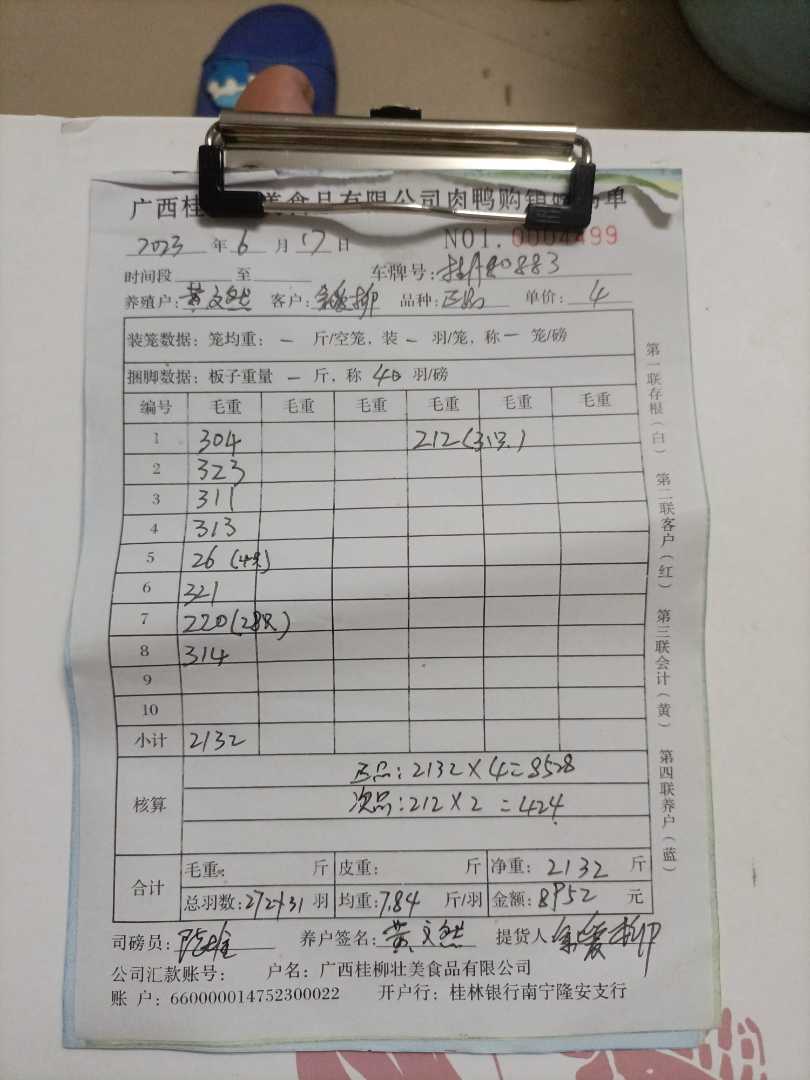 广西桂 美食品有限公司肉鸭购销 单
2023 年 6 月 17 日 NO1.0004499
时间段 至 车牌号: 80883
养殖户: 黄文然 客户: 柳 品种: 正品 单价: 4
装笼数据: 笼均重: — 斤/空笼, 装 — 羽/笼, 称 — 笼/磅
捆脚数据: 板子重量 — 斤, 称 40 羽/磅
编号 毛重 毛重 毛重 毛重 毛重 毛重
1 304 212(31只)
2 323
3 311
4 313
5 26 (4只)
6 321
7 220(28只)
8 314
9
10
小计 2132
核算
正品: 2132×4=8528
次品: 212×2=424
合计
毛重: 斤 皮重: 斤 净重: 2132 斤
总羽数: 272+31 羽 均重: 7.84 斤/羽 金额: 8952 元
司磅员: 养户签名: 黄文然 提货人 柳
公司汇款账号: 户名: 广西桂柳壮美食品有限公司
账 户: 660000014752300022 开户行: 桂林银行南宁隆安支行
第一联存根(白) 第二联客户(红) 第三联会计(黄) 第四联养户(蓝)